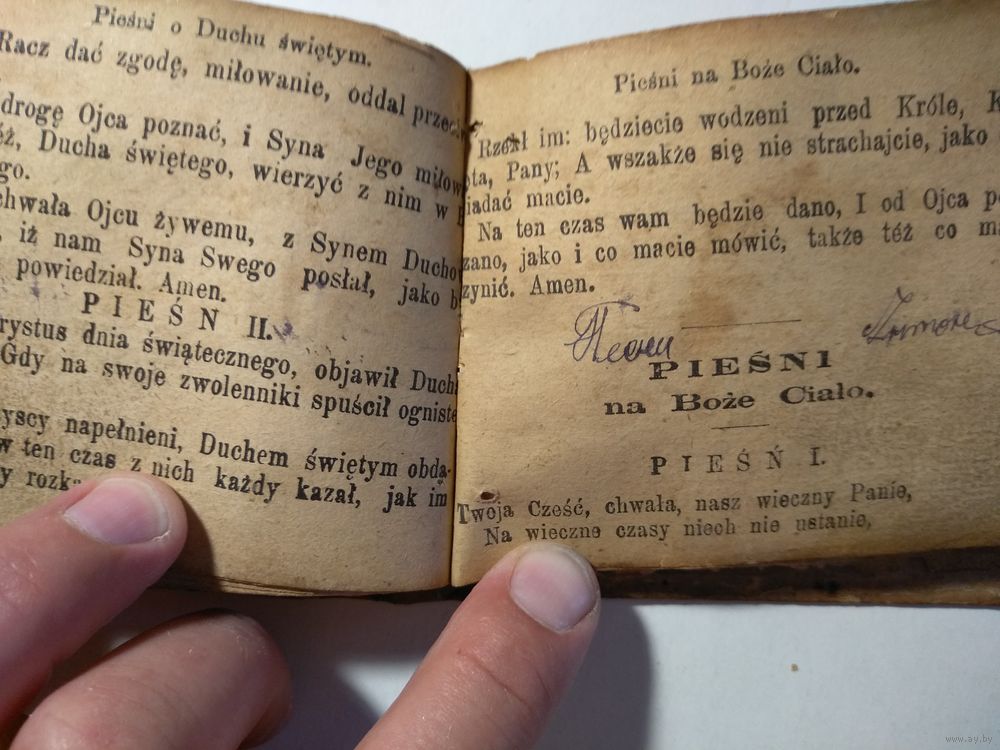 Pieśni o Duchu świętym.
Racz dać zgodę, miłowanie, oddal przec
drogę Ojca poznać, i Syna Jego miłow
éż, Ducha świętego, wierzyć z nim w
go.
chwała Ojcu żywemu, z Synem Ducho
iż nam Syna Swego posłał, jako b
powiedział. Amen.
PIEŚŃ II.
rystus dnia świątecznego, objawił Duch
Gdy na swoje zwolenniki spuścił ogniste
yscy napełnieni, Duchem świętym obda-
w ten czas z nich każdy kazał, jak im
y rozk
Pieśni na Boże Ciało.
Rzekł im: będziecie wodzeni przed Króle, K
ta, Pany; A wszakże się nie strachajcie, jako
iadać macie.
Na ten czas wam będzie dano, I od Ojca p
zano, jako i co macie mówić, także téż co m
zynić. Amen.
PIEŚNI
na Boże Ciało.
PIEŚŃ I.
Twoja Cześć, chwała, nasz wieczny Panie,
Na wieczne czasy niech nie ustanie,
www.ay.by